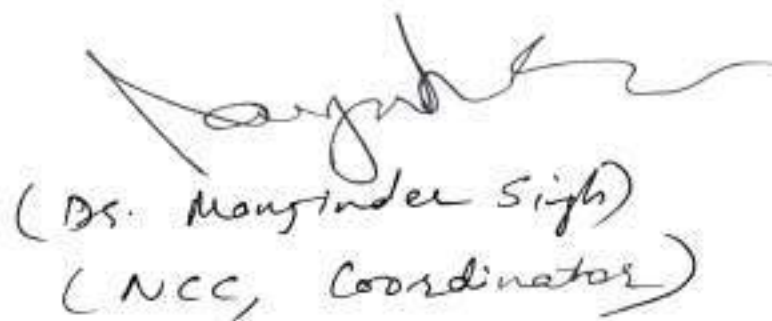 (Dr. Manjinder Singh)
(NCC, Coordinator)